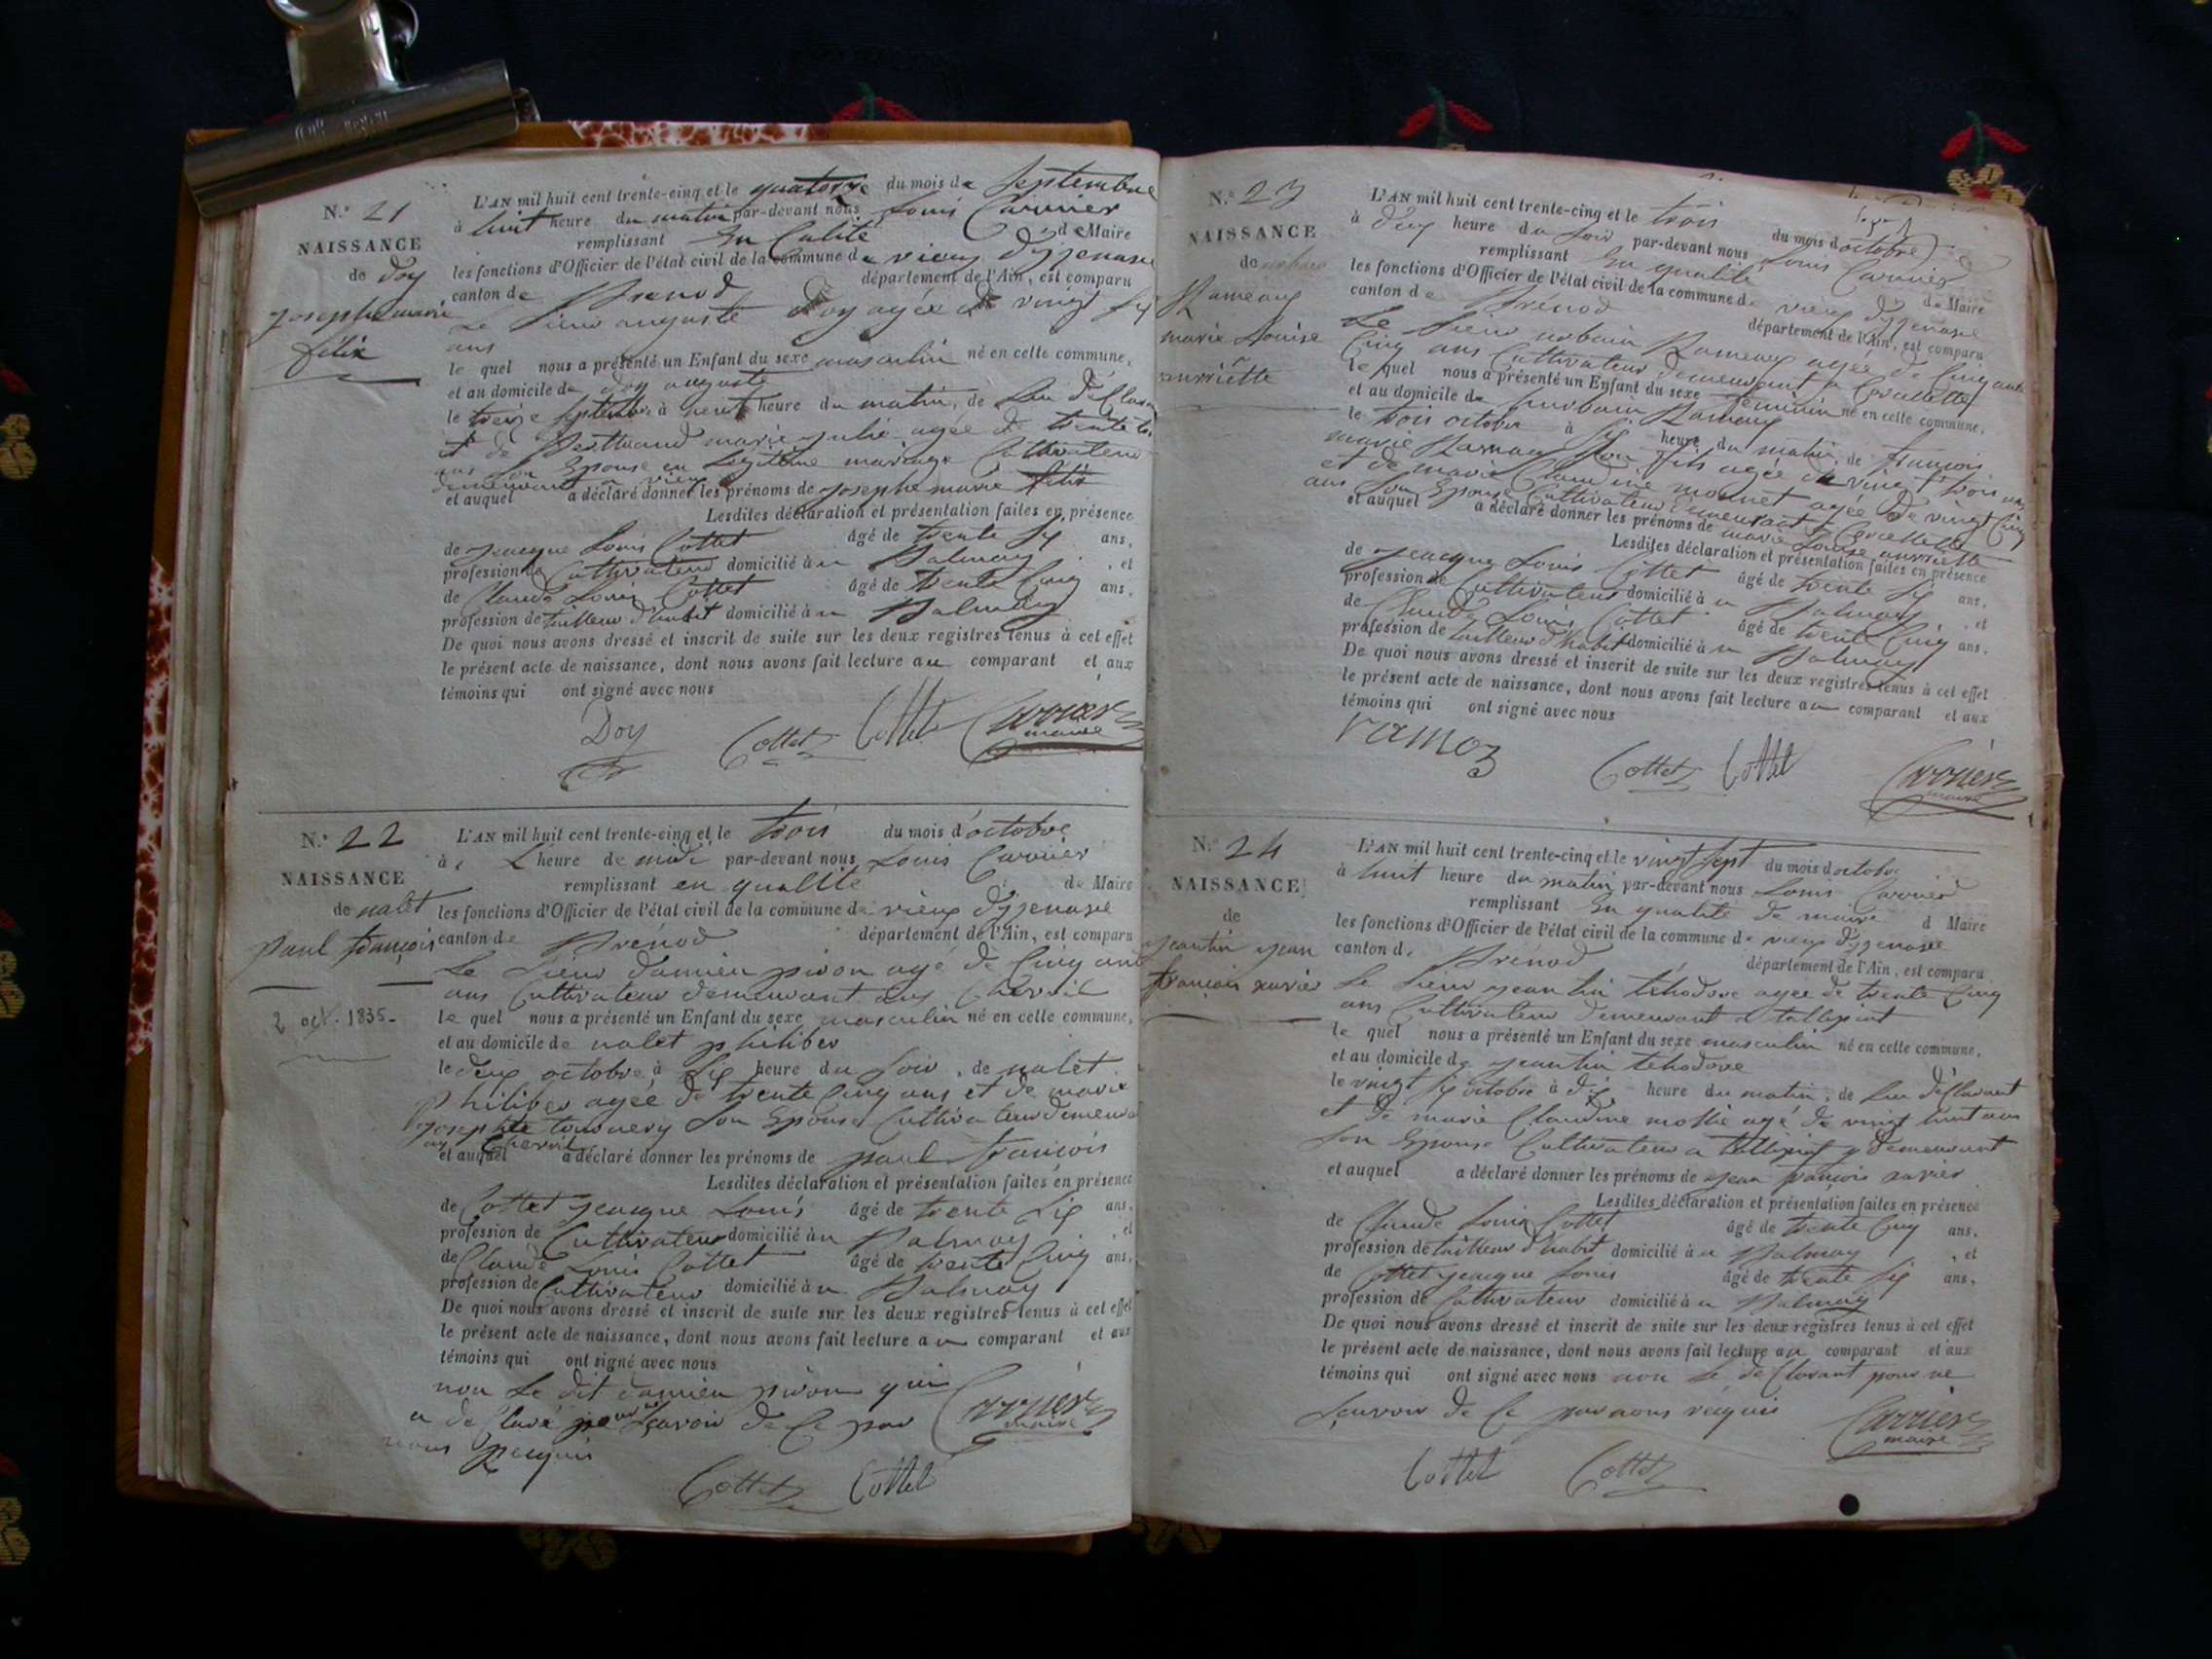 N.° 21
NAISSANCE
de Doy
josephe marie
félix
L'AN mil huit cent trente-cinq et le quatorze du mois de Septembre
à huit heure du matin par-devant nous Louis Carrier
remplissant En Calité de Maire
les fonctions d'Officier de l'état civil de la commune de vieux d'yzenave
canton de Brénod département de l'Ain, est comparu
Le Sieur auguste Doy agée de vingt six
ans
le quel nous a présenté un Enfant du sexe masculin né en cette commune,
et au domicile de Doy auguste
le treize septembre à neuf heure du matin, de Lui déClarant
et de marie julie agée de trente
ans Son Epouse en Légitime mariage Cultivateur
demeurant a vieux
et auquel a déclaré donner les prénoms de josephe marie félix
Lesdites déclaration et présentation faites en présence
de jeacque Louis Cottet âgé de trente six ans,
profession de Cultivateur domicilié à u Balmay , et
de Claude Louis Cottet âgé de trente Cinq ans,
profession de tailleur d'habit domicilié à u Balmay
De quoi nous avons dressé et inscrit de suite sur les deux registres tenus à cet effet
le présent acte de naissance, dont nous avons fait lecture au comparant et aux
témoins qui ont signé avec nous
Doy Cottet Cottet Carrier
maire
N.° 22
NAISSANCE
de nalet
paul françois
2 oct. 1835-
L'AN mil huit cent trente-cinq et le trois du mois d'octobre
à L heure de midi par-devant nous Louis Carrier
remplissant en qualité de Maire
les fonctions d'Officier de l'état civil de la commune de vieux d'yzenave
canton de Brénod département de l'Ain, est comparu
Le Sieur damien pivon agé de Cinq ante
ans Cultivateur demeurant aux Chevril
le quel nous a présenté un Enfant du sexe masculin né en cette commune,
et au domicile de nalet philiber
le deux octobre à six heure du soir, de nalet
philiber agée de trente Cinq ans et de marie
josephte tournery Son Epouse Cultivateur demeurant
aux Chevril
et auquel a déclaré donner les prénoms de paul françois
Lesdites déclaration et présentation faites en présence
de Cottet jeacque Louis âgé de trente six ans,
profession de Cultivateur domicilié à u Balmay , et
de Claude Louis Cottet âgé de trente Cinq ans,
profession de Cultivateur domicilié à u Balmay
De quoi nous avons dressé et inscrit de suite sur les deux registres tenus à cet effet
le présent acte de naissance, dont nous avons fait lecture au comparant et aux
témoins qui ont signé avec nous
non Le dit damien pivon qui
a déClaré ne Scavoir de Ce par
nous Requis
Carrier
maire
Cottet Cottet
N.° 23
NAISSANCE
de urbain
Rameaux
marie Louise
anriétte
L'AN mil huit cent trente-cinq et le trois du mois d'octobre
à deux heure du soir par-devant nous Louis Carrier
remplissant En qualité de Maire
les fonctions d'Officier de l'état civil de la commune de vieux d'yzenave
canton de Brénod département de l'Ain, est comparu
Le Sieur urbain Rameaux agée de Cinquante
Cinq ans Cultivateur demeurant a Corcellette
le quel nous a présenté un Enfant du sexe féminin né en cette commune,
et au domicile de hurbain Rameaux
le trois octobre à six heure du matin, de françois
marie Rameaux Son fils agée de vingt trois ans
et de marie Claudine monnet agée de vingt Cinq
ans Son Epouse Cultivateur demeurant a Corcellette
et auquel a déclaré donner les prénoms de marie Louise anriette
Lesdites déclaration et présentation faites en présence
de jeacque Louis Cottet âgé de trente six ans,
profession de Cultivateur domicilié à u Balmay , et
de Claude Louis Cottet âgé de trente Cinq ans,
profession de tailleur d'habit domicilié à u Balmay
De quoi nous avons dressé et inscrit de suite sur les deux registres tenus à cet effet
le présent acte de naissance, dont nous avons fait lecture au comparant et aux
témoins qui ont signé avec nous
ramoz
Cottet Cottet Carrier
maire
N.° 24
NAISSANCE
de
jeantin jean
françois xavier
L'AN mil huit cent trente-cinq et le vingt sept du mois d'octobre
à huit heure du matin par-devant nous Louis Carrier
remplissant En qualité de maire d Maire
les fonctions d'Officier de l'état civil de la commune de vieux d'yzenave
canton de Brénod département de l'Ain, est comparu
Le Sieur jeantin téhodore agée de trente Cinq
ans Cultivateur demeurant a tallipiat
le quel nous a présenté un Enfant du sexe masculin né en cette commune,
et au domicile de jeantin téhodore
le vingt six octobre à dix heure du matin, de Lui déClarant
et de marie Claudine agé de vingt huit ans
Son Epouse Cultivateur a tallipiat y demeurant
et auquel a déclaré donner les prénoms de jean françois xavier
Lesdites déclaration et présentation faites en présence
de Claude Louis Cottet âgé de trente Cinq ans,
profession de tailleur d'habit domicilié à u Balmay , et
de Cottet jeacque Louis âgé de trente six ans,
profession de Cultivateur domicilié à u Balmay
De quoi nous avons dressé et inscrit de suite sur les deux registres tenus à cet effet
le présent acte de naissance, dont nous avons fait lecture au comparant et aux
témoins qui ont signé avec nous non Le déClarant pour ne
Scavoir de Ce par nous requis
Carrier
maire
Cottet Cottet